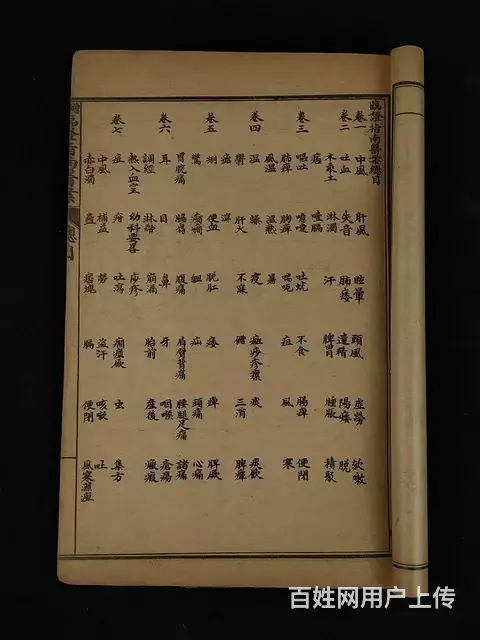 臨證指南醫案總目
卷一 中風 肝風 眩暈 頭風 虛勞 咳嗽
卷二 吐血 失音 肺痿 遺精 陽痿 脫
木乘土 淋濁 汗 脾胃 腫脹 積聚
噎膈
卷三 嘔吐 噫噯 吐蚘 不食 腸痺 便閉
肺痺 胸痺 喘呃 疸 風 寒
風溫 溫熱 暑
卷四 溫 燥 疫 痰 痰飲
鬱 肝火 不寐 三消 脾癉
瘧 瀉
卷五 痢 便血 脫肛 痿 痺
驚 癲癇 衄 疝 頭痛 心痛
胃脘痛 腹痛 肩臂背痛 腰腿足痛 諸痛
卷六 耳 目 鼻 牙 咽喉 瘡瘍
調經 淋帶 崩漏 胎前 產後 癥瘕
熱入血室 幼科要畧 痧疹
卷七 疳 吐瀉 癇痙厥 虫 集方
中風 補益 勞 盜汗 咳嗽 吐
赤白濁 膈 便閉 風寒濕痺
臨證指南醫案 總目
百姓网用户上传